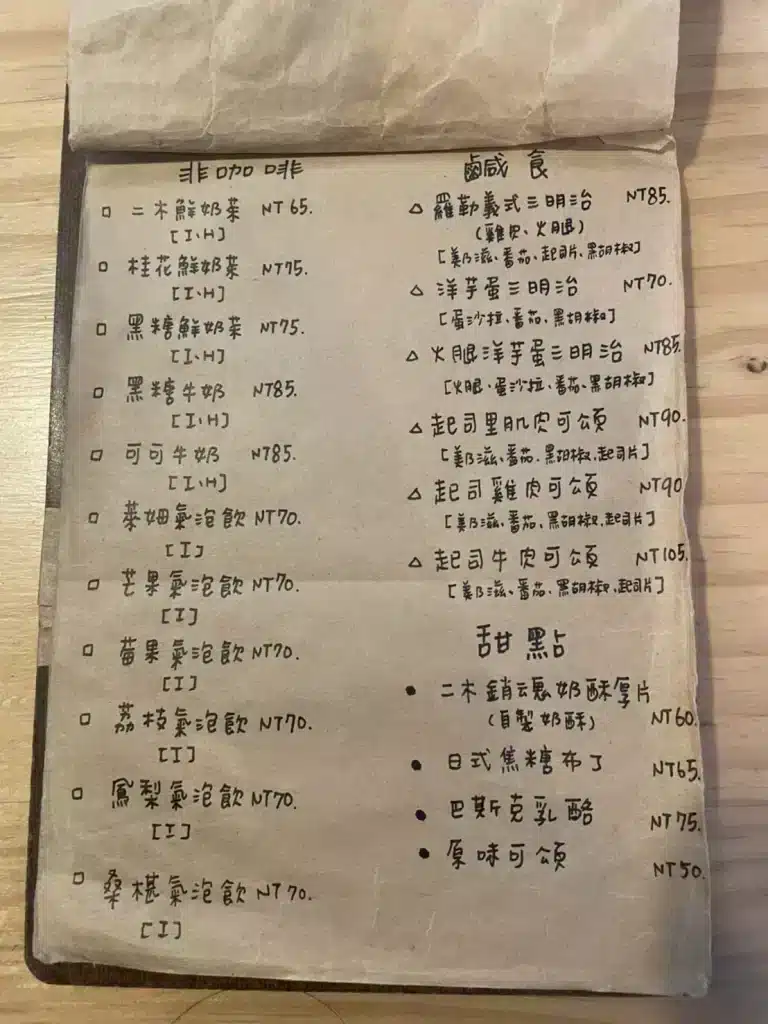 非咖啡
二木鮮奶茶 NT65.
[I、H]
桂花鮮奶茶 NT75.
[I、H]
黑糖鮮奶茶 NT75.
[I、H]
黑糖牛奶 NT85.
[I、H]
可可牛奶 NT85.
[I、H]
萊姆氣泡飲 NT70.
[I]
芒果氣泡飲 NT70.
[I]
莓果氣泡飲 NT70.
[I]
荔枝氣泡飲 NT70.
[I]
鳳梨氣泡飲 NT70.
[I]
桑椹氣泡飲 NT70.
[I]
鹹食
羅勒義式三明治 NT85.
(雞肉、火腿)
[美乃滋、番茄、起司片、黑胡椒]
洋芋蛋三明治 NT70.
[蛋沙拉、番茄、黑胡椒]
火腿洋芋蛋三明治 NT85.
[火腿、蛋沙拉、番茄、黑胡椒]
起司里肌肉可頌 NT90.
[美乃滋、番茄、黑胡椒、起司片]
起司雞肉可頌 NT90
[美乃滋、番茄、黑胡椒、起司片]
起司牛肉可頌 NT105.
[美乃滋、番茄、黑胡椒、起司片]
甜點
二木銷魂奶酥厚片
(自製奶酥) NT60.
日式焦糖布丁 NT65.
巴斯克乳酪 NT75.
原味可頌 NT50.